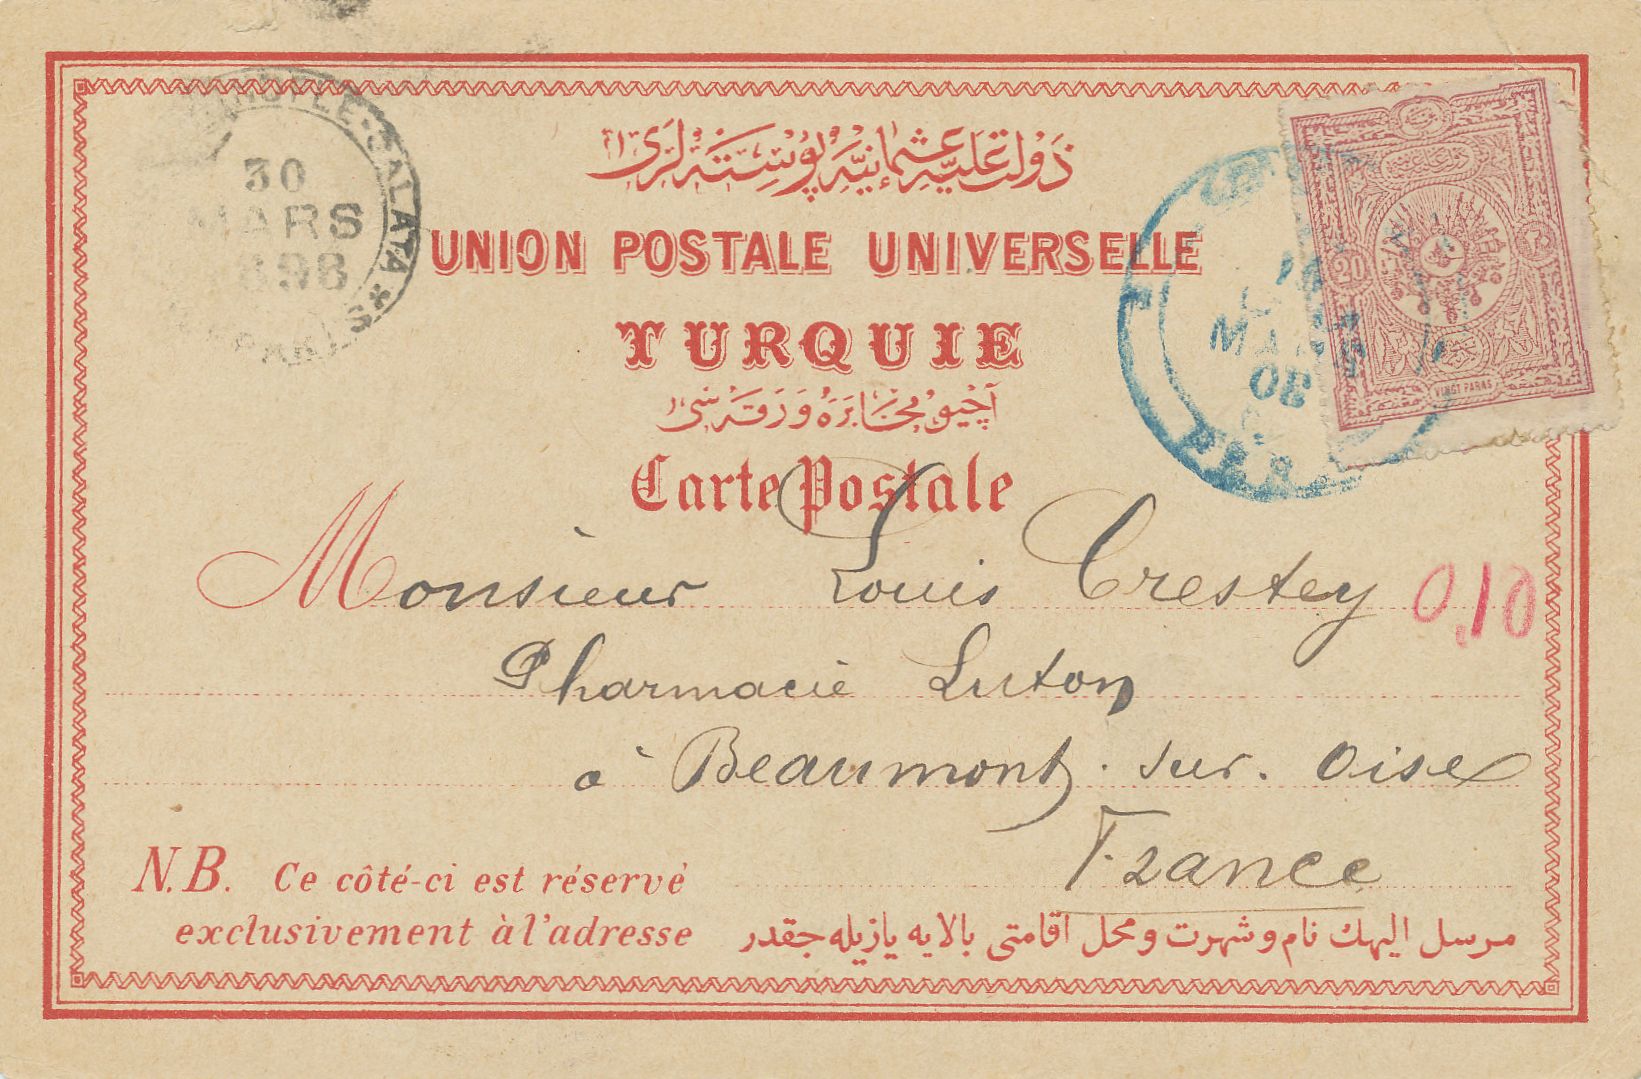 دولت علیهٔ عثمانیه پوسته لری
UNION POSTALE UNIVERSELLE
TURQUIE
آچیق مخابره ورقه سی
Carte Postale
30
MARS
898
GALATA
20
VINGT PARAS
MARS
Monsieur Louis Crestey
0,10
Pharmacie Luton
à Beaumont-sur-Oise
France
N.B. Ce côté-ci est réservé
exclusivement à l'adresse
مرسل الیهك نام و شهرت و محل اقامتی بالایه یازیله جقدر